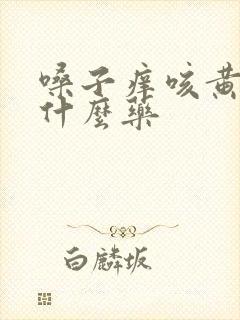 嗓子痒咳黄
什麼藥
白麟坂